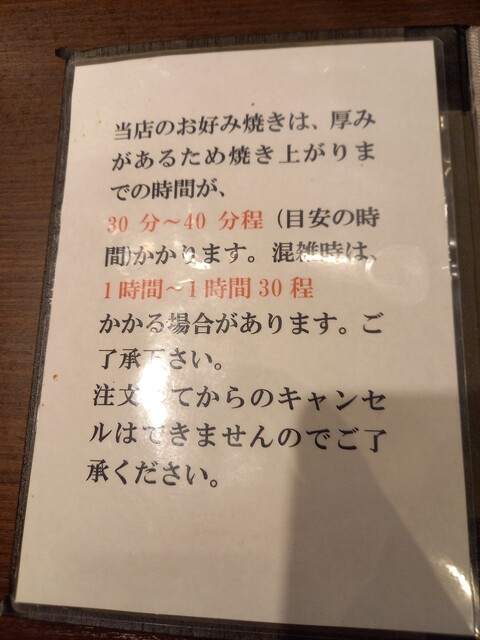 当店のお好み焼きは、厚み
があるため焼き上がりま
での時間が、
30 分～40 分程（目安の時
間)かかります。混雑時は、
1時間～1時間30程
かかる場合があります。ご
了承下さい。
注文してからのキャンセ
ルはできませんのでご了
承ください。